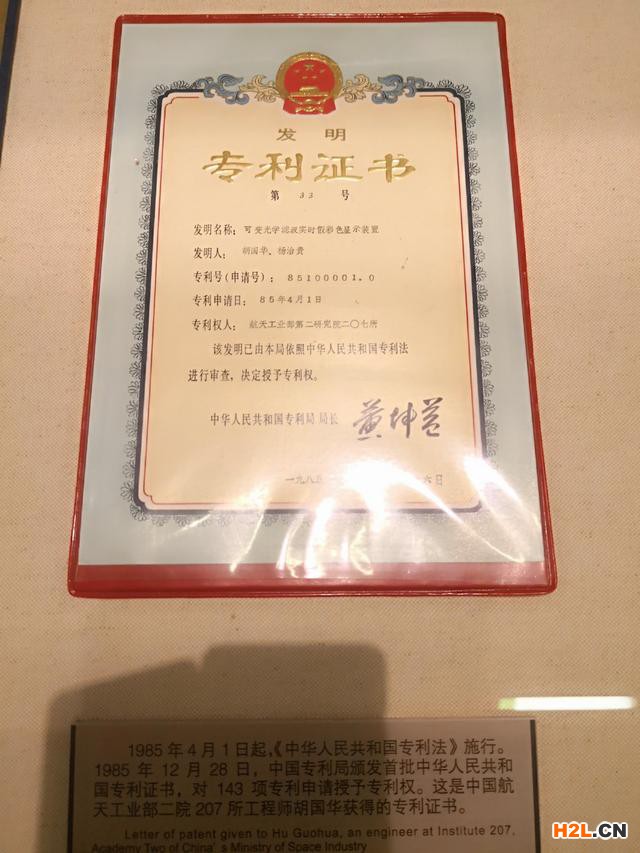 发明
专利证书
第 33 号
发明名称：可变光学滤波实时假彩色显示装置
发明人：胡国华、杨治贵
专利号(申请号)：85100001.0
专利申请日：85年4月1日
专利权人：航天工业部第二研究院二〇七所
该发明已由本局依照中华人民共和国专利法
进行审查，决定授予专利权。
中华人民共和国专利局 局长 黄坤益
一九八五
六日
1985年4月1日起,《中华人民共和国专利法》施行。
1985年12月28日，中国专利局颁发首批中华人民共和
国专利证书，对143项专利申请授予专利权。这是中国航
天工业部二院207所工程师胡国华获得的专利证书。
Letter of patent given to Hu Guohua, an engineer at Institute 207,
Academy Two of China's Ministry of Space Industry
H2L.CN